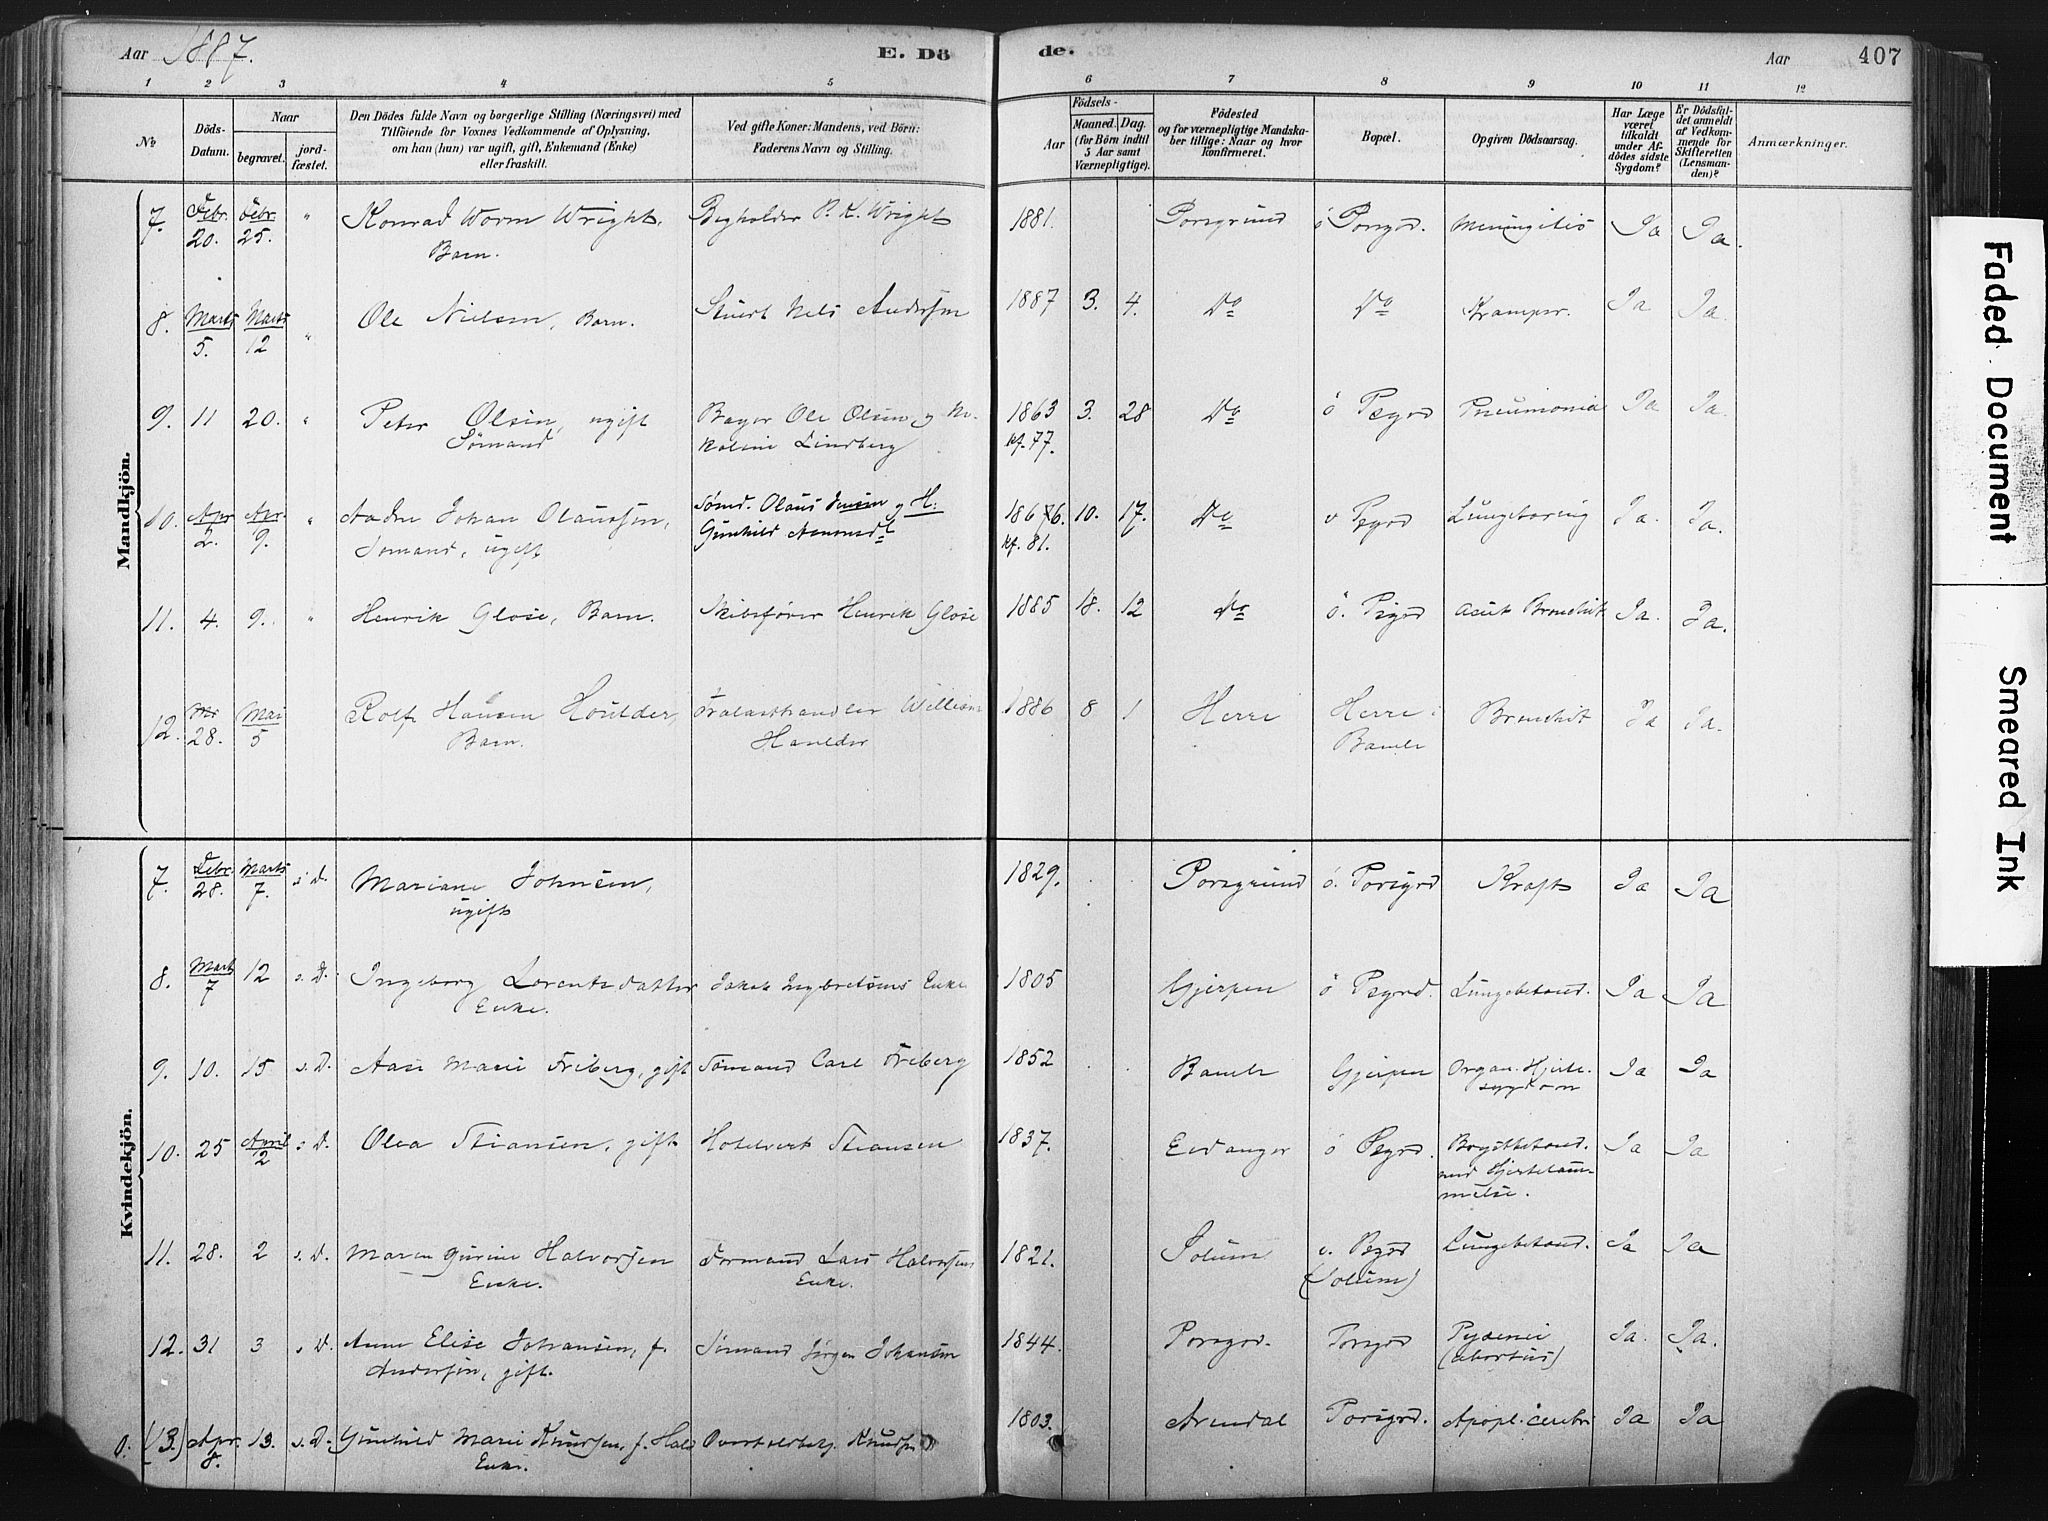 Aar 1887.
E. Dö
de.
Aar
407
1 2 3 4 5 6 7 8 9 10 11 12
№
Döds-Datum.
Naar
begravet.
jord-fæstet.
Den Dödes fulde Navn og borgerlige Stilling (Næringsvei) med
Tilföiende for Voxnes Vedkommende af Oplysning,
om han (hun) var ugift, gift, Enkemand (Enke)
eller fraskilt.
Ved gifte Koner: Mandens, ved Börn:
Faderens Navn og Stilling.
Födsels-
Aar
Maaned.
Dag.
(for Börn indtil
5 Aar samt
Værnepligtige).
Födested
og for værnepligtige Mandska-
ber tillige: Naar og hvor
konfirmeret.
Bopæl.
Opgiven Dödsaarsag.
Har Læge
været
tilkaldt
under Af-
dödes sidste
Sygdom?
Er Dödsfal-
det anmeldt
af Vedkom-
mende for
Skifteretten
(Lensman-
den)?
Anmærkninger.
Mandkjön.
7. Febr. 20. Febr. 25. " Konrad Worm Wright, Barn. P. K. Wright 1881. Porsgrund ö Porsgrd. Meningitis Ja Ja.
8. Marts 5. Marts 12 " Ole Nielsen, Barn. Stuert Nels Andersen 1887 3. 4. Do Do Kramper. Ja Ja.
9. 11 20. " Peter Olsen, ugift Sømand Bager Ole Olsen og Ni-koline Lindberg 1863 kf. 77. 3. 28 Do ö Psgrd Pneumonia Ja Ja.
10. Apr 2. Apr. 9. " Johan Olaussen, Sømand, ugift Sømd. Olaus Jensen og H. Gunhild 1866. kf. 81. 10. 17. Do v Psgrd Ja. Ja.
11. 4. 9. " Henrik Gløse, Barn. Skibsfører Henrik Gløse 1885 18. 12 Do ö. Psgrd Acut Bronchit Ja. Ja.
12. 28. Mai 5 Rolf Hansen Houlder, Barn. Trælasthandler William Houlder 1886 8 1 Herre Herre i Bamle Bronchit Ja Ja.
Kvindekjön.
7. Febr. 28. Marts 7. s. D. Mariane Johnsen, ugift 1829. Porsgrund ö. Porsgrd Kræft Ja Ja
8. Marts 7 12 s. D. Ingeborg Lorentsdatter Enke. Jakob Ingbretsens Enke 1805 Gjerpen ö Psgrd. Lungebetænd. Ja Ja
9. 10. 15 s. D. Aase Marie Friberg, gift Sømand Carl Friberg 1852 Bamle Gjerpen Organ. Hjerte-sygdom Ja Ja
10. 25 April 2 s. D. Olea Stiansen, gift Hotelvert Stiansen 1837. Eidanger ö Psgrd. Brystbetænd. med Hjertelam-melse. Ja Ja
11. 28. 2 s. D. Maren Gurine Halvorsen Enke. Formand Lars Halvorsens Enke. 1821. Solum v. Psgrd (Solum) Lungebetænd. Ja Ja
12. 31 3 s. D. Anne Elise Johansen, f. Andersen, gift. Sømand Jørgen Johansen 1844. Porsgrd. Porsgrd Pyæmi (abortus) Ja. Ja.
0. (13.) Apr. 8. 13. s. D. Gunhild Marie Knudsen, f. Hals Enke. Overtoldbetj. Knudsen 1803. Arendal Porsgrd. Apopl. cerebri Ja Ja
Faded Document
Smeared Ink